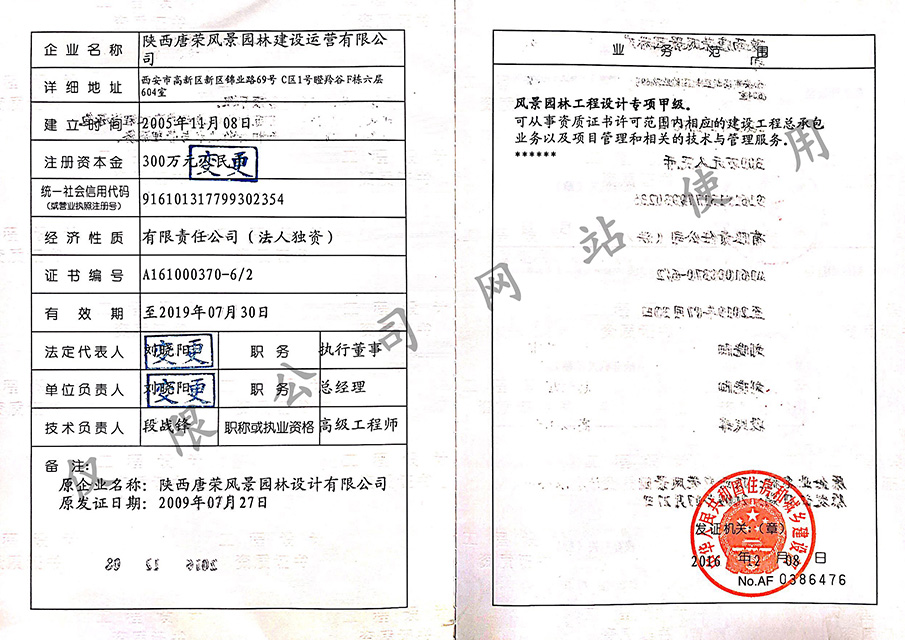 企业名称
陕西唐荣风景园林建设运营有限公
司
详细地址
西安市高新区新区锦业路69号 C区1号瞪羚谷F栋六层
604室
建立时间
2005年11月08日
注册资本金
300万元人民币
变更
统一社会信用代码
(或营业执照注册号)
916101317799302354
经济性质
有限责任公司(法人独资)
证书编号
A161000370-6/2
有效期
至2019年07月30日
法定代表人
刘晓阳
变更
职务
执行董事
单位负责人
刘晓阳
变更
职务
总经理
技术负责人
段战锋
职称或执业资格
高级工程师
备注:
原企业名称: 陕西唐荣风景园林设计有限公司
原发证日期: 2009年07月27日
业务范围
风景园林工程设计专项甲级。
可从事资质证书许可范围内相应的建设工程总承包
业务以及项目管理和相关的技术与管理服务。
******
中华人民共和国住房和城乡建设部
发证机关:(章)
2016年12月08日
No.AF 0386476
仅限公司网站使用